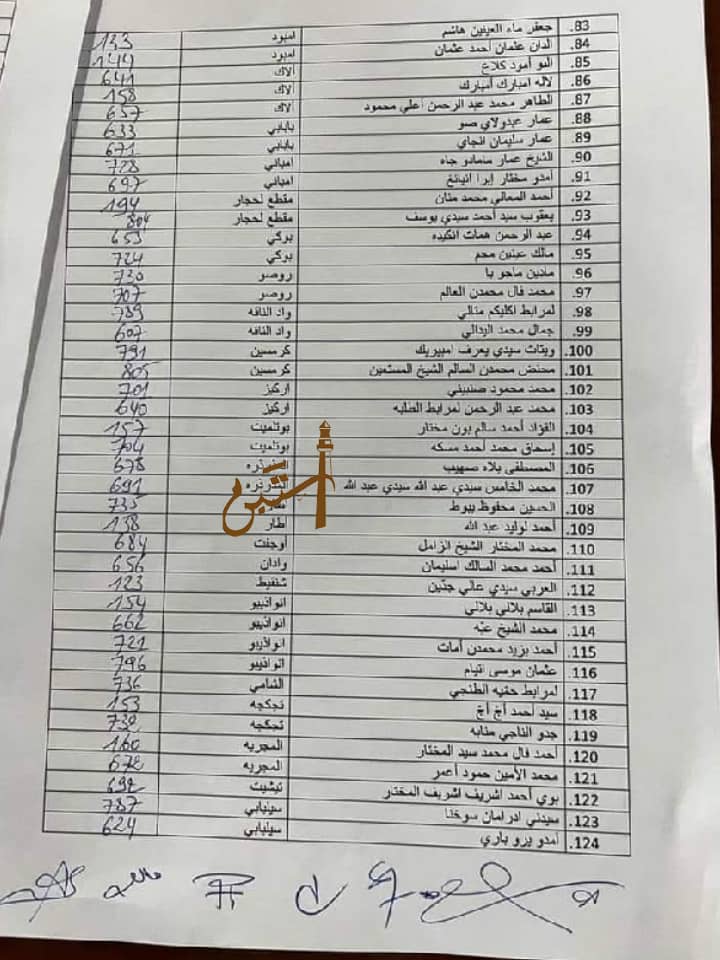 83. جعفر ماء العينين هاشم امبود 133
84. الدان عثمان أحمد عثمان امبود 144
85. البو أمود كلاع ألاك 641
86. لاله امبارك أمبارك ألاك 158
87. الطاهر محمد عبد الرحمن أعلي محمود ألاك 657
88. عمار عبدولاي صو بابابي 633
89. عمار سليمان انجاي بابابي 671
90. الشيخ عمار مامادو جاه امباني 728
91. أمدو مختار إبرا انيانغ امباني 697
92. أحمد المعالي محمد منان مقطع لحجار 194
93. يعقوب سيد أحمد سيدي يوسف مقطع لحجار 804
94. عبد الرحمن همات انكيده بوكي 653
95. مالك عينين محم بوكي 724
96. مادين ماجو با روصو 730
97. محمد فال محمدن العالم روصو 707
98. لمرابط اكليكم منالي واد الناقه 789
99. جمال محمد اليدالي واد الناقه 607
100. ويتات سيدي يعرف امبيريك كرمسين 791
101. محنض محمدن السالم الشيخ المستعين كرمسين 805
102. محمد محمود صنبيني اركيز 701
103. محمد عبد الرحمن لمرابط الطلبه اركيز 640
104. الفؤاد أحمد سالم بون مختار بوتلميت 157
105. إسحاق محمد أحمد مسكه بوتلميت 704
106. المصطفى بلاه صهيب 678
107. محمد الخامس سيدي عبد الله سيدي عبد الله 691
108. الحسين محفوظ بيوط 735
109. أحمد لوليد عبد الله أطار 138
110. محمد المختار الشيخ الزامل أوجفت 684
111. أحمد محمد السالك اسليمان وادان 656
112. العربي سيدي عالي جدين شنقيط 123
113. القاسم بلالي بلالي انواذيبو 154
114. محمد الشيخ عبه انواذيبو 662
115. أحمد بزيد محمدن أمات انواذيبو 721
116. عثمان موسى اتيام انواذيبو 796
117. لمرابط حقيه الطنجي الشامي 736
118. سيد أحمد أج أج تجكجه 153
119. جدو الناجي منابه تجكجه 732
120. أحمد فال محمد سيد المختار المجريه 160
121. محمد الأمين حمود أعمر المجريه 672
122. بوي أحمد اشريف اشريف المختار تيشيت 692
123. سيدني ادرامان سوخنا سيليبابي 787
124. أمدو يرو باري سيليبابي 624